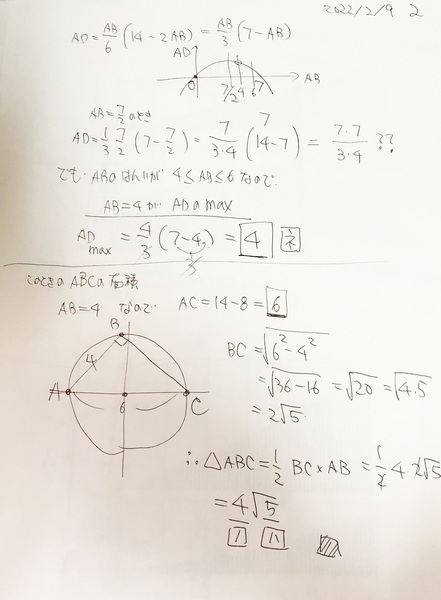 2022/2/9 2
AD = AB/6 (14 - 2AB) = AB/3 (7 - AB)
AD
O 7/2 4 6 7 AB
AB = 7/2 のとき
AD = 1/3 7/2 (7 - 7/2) = 7/3·4 (14 - 7) = 7·7/3·4 ??
でも ABのはんいが 4 ≤ AB ≤ 6 なので
AB = 4 が ADの max
AD max = 4/3 (7 - 4) = 4 ネ
このときの ABCの面積
AB = 4 なので AC = 14 - 8 = 6
B
4
A 6 C
BC = √6² - 4²
= √36 - 16 = √20 = √4.5
= 2√5
∴ △ABC = 1/2 BC × AB = 1/2 4·2√5
= 4√5
ノ ハ